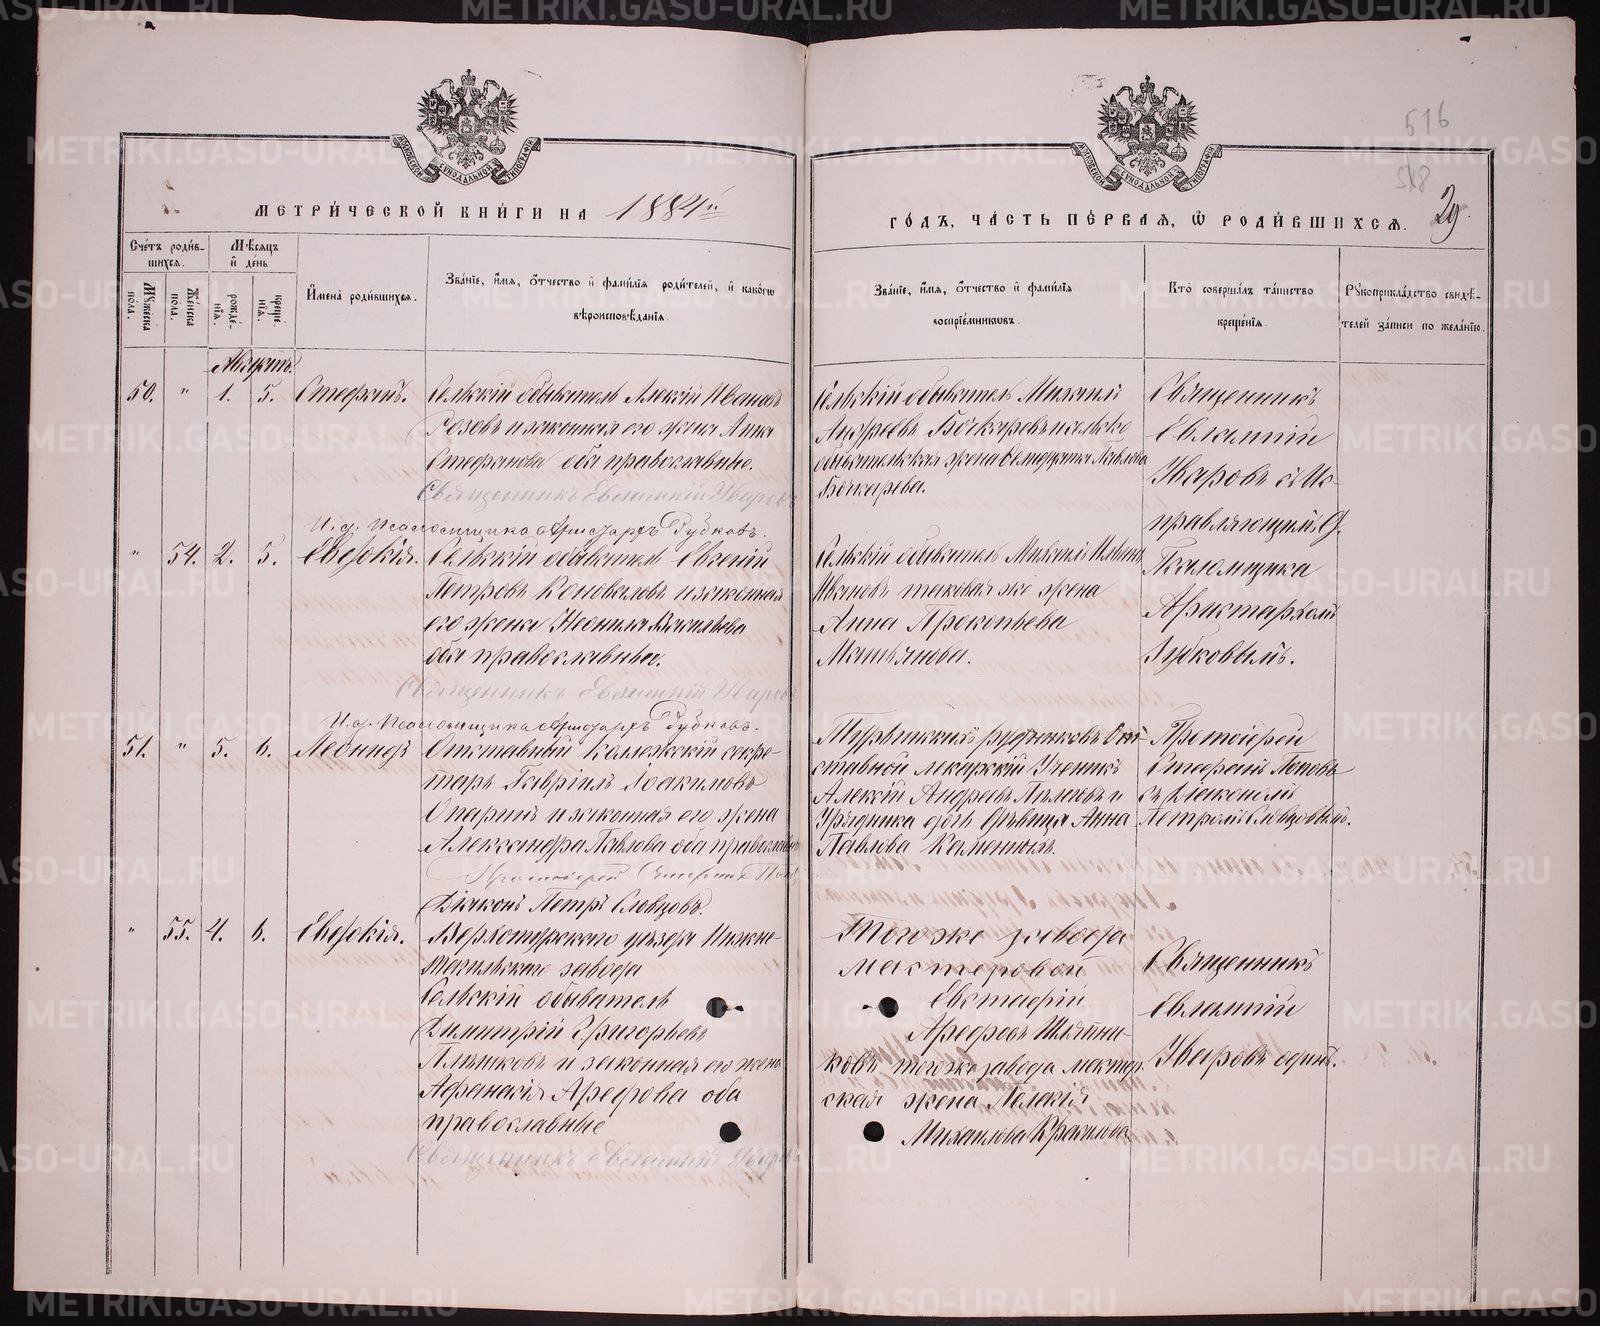 МЕТРИ́ЧЕСКОЙ КНИ́ГИ НА 1884й
ГО́ДЪ, ЧА́СТЬ ПЕ́РВАЯ, Ѡ РОДИ́ВШИХСЯ.
29.
516
518
Сче́тъ роди́в-
шихся.
Мѣ́сяцъ
и҆ де́нь
Мꙋ́жеска
по́ла.
Же́нска
по́ла.
рожде́-
нїѧ.
креще́-
нїѧ.
И҆мена̀ роди́вшихся.
Зва́нїе, и҆́мя, ѻ҆́тчество и҆ фами́лїя роди́телей, и҆ како́гѡ
вѣроисповѣ́данїя.
Зва́нїе, и҆́мя, ѻ҆́тчество и҆ фами́лїя
воспрїе́мниковъ.
Кто̀ соверша́лъ та́инство
креще́нїя.
Рꙋкоприкла́дство свидѣ́-
телей за́писи по жела́нїю.
Августъ.
50. " 1. 5. Стефанъ.
Сельскій обыватель Алексій Ивановъ
Розовъ и законная его жена Анна
Стефанова оба православные.
Священникъ Евлампій Уваровъ
И.д. Псаломщика Аристархъ Зубковъ.
Сельскій обыватель Михаилъ
Андреевъ Бочкаревъ и сельско
обывательская жена Павлова
Бочкарева.
Священникъ
Евлампій
Уваровъ съ Ис-
правляющимъ Д.
Псаломщика
Аристархомъ
Зубковымъ.
" 54. 2. 5. Евдокія.
Сельскій обыватель Евгеній
Петровъ Коноваловъ и законная
его жена Неонила Васильева
оба православные.
Священникъ Евлампій Уваровъ
И.д. Псаломщика Аристархъ Зубковъ.
Сельскій обыватель Михаилъ Ильинъ
Ивановъ таковая же жена
Анна Прокопьева
51. " 5. 6. Леонидъ
Отставный Коллежскій секре-
тарь Гавріилъ Іоакимовъ
Опаринъ и законная его жена
Александра Павлова оба православные
Протоіерей Стефанъ Поповъ
Діаконъ Петръ Словцовъ.
Турьинскихъ рудниковъ От-
ставной лекарскій Ученикъ
Алексій Андреевъ и
Урядника дочь Дѣвица Анна
Павлова Каменныхъ.
Протоіерей
Стефанъ Поповъ
съ Діакономъ
Петромъ Словцовымъ.
" 55. 4. 6. Евдокія.
Верхотурскаго уѣзда Нижне-
Тагильскаго завода
Сельскій обыватель
Димитрій Григорьевъ
Плѣшковъ и законная его жена
Афанасія Арефова оба
православные
Священникъ Евлампій Уваровъ
Того же завода
мастеровой
Евстафій
Арефовъ Шляпни-
ковъ того же завода мастер-
ская жена Пелагія
Михаилова
Священникъ
Евлампій
Уваровъ одинъ.
METRIKI.GASO-URAL.RU